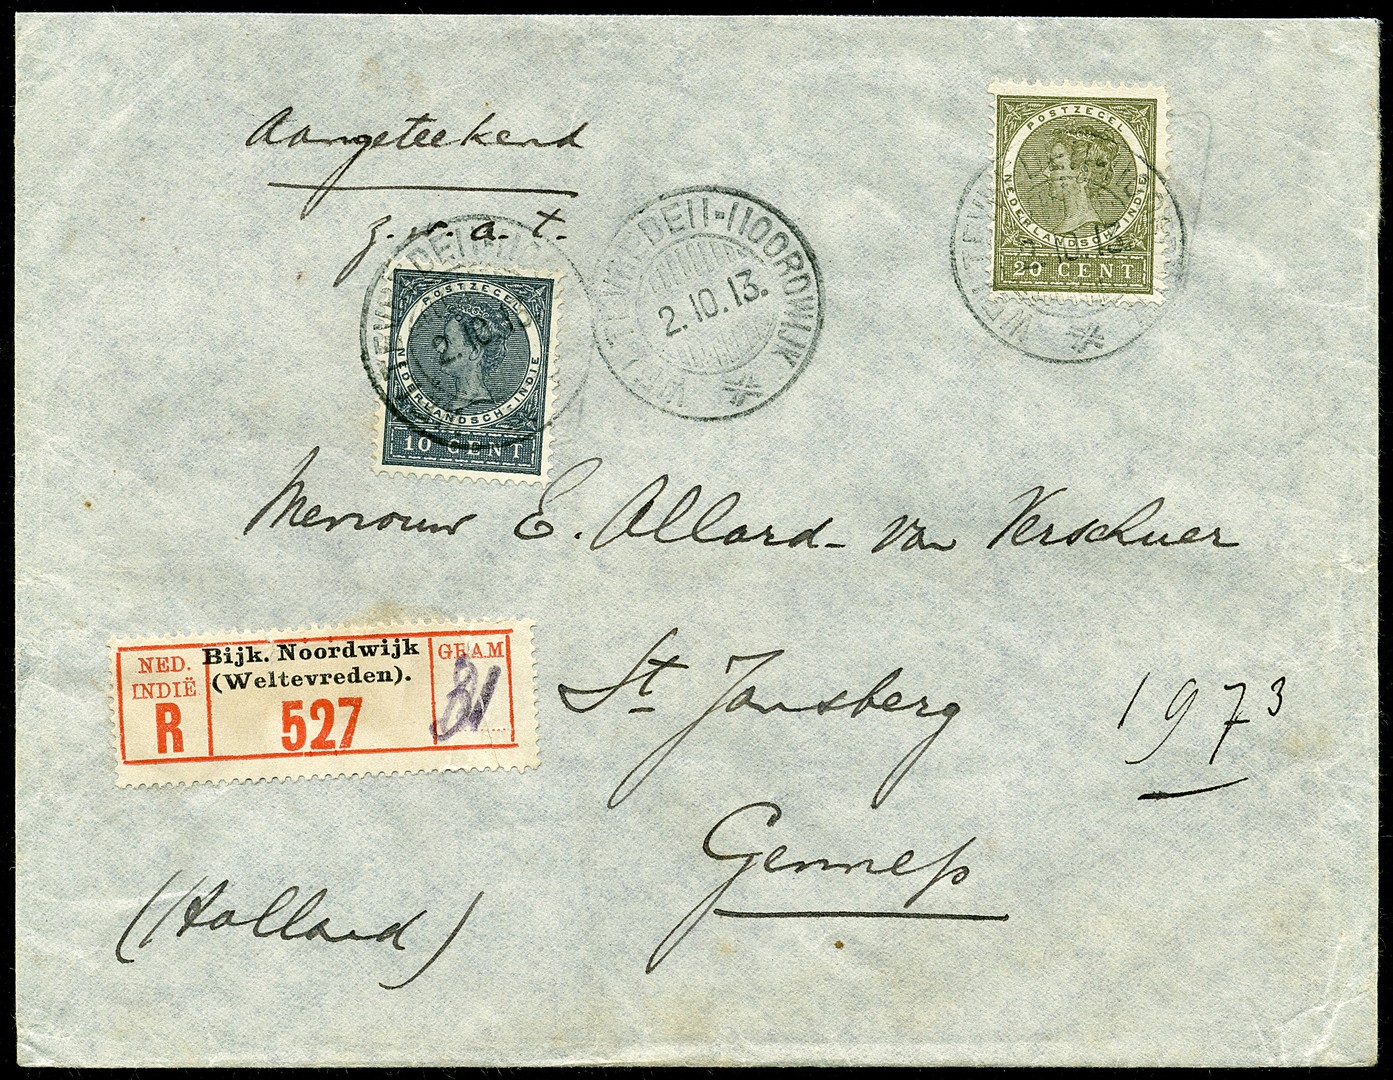 Aangeteekend
z.w.a.t.
POSTZEGEL
NEDERLANDSCH-INDIE
20 CENT
WELTEVREDEN-NOORDWIJK
2.10.13.
POSTZEGEL
NEDERLANDSCH-INDIE
10 CENT
2.10.13
Mevrouw E. Allard-van Verschuer
NED. INDIË
R
Bijk. Noordwijk
(Weltevreden).
527
GRAM
St Jansberg
1973
Gennep
(Holland)